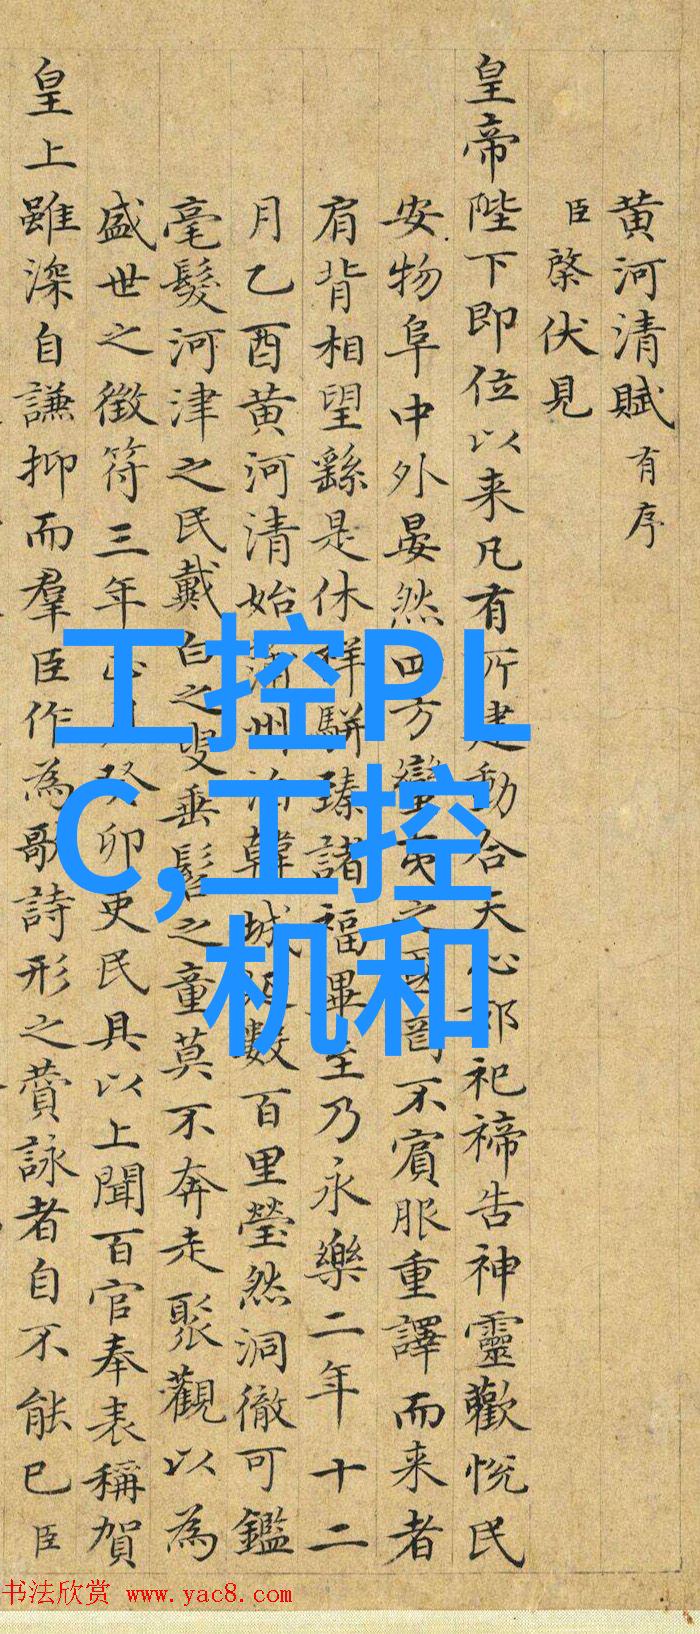 黄河清賦 有序
臣棨伏見
皇帝陛下即位以来凡有所建動合天心郊祀禘告神靈歡悦民
安物阜中外晏然四方蠻夷之國罔不賓服重譯而来者
肩背相望繇是休祥駢臻諸福畢至乃永樂二年十二
月乙酉黄河清始蒲州韓城數百里瑩然洞徹可鑑
毫髮河津之民戴白之叟垂髫之童莫不奔走聚觀以為
盛世之徵符三年正月癸卯吏民具以上聞百官奉表稱賀
皇上雖深自謙抑而羣臣作為歌詩形之賛詠者自不能已臣
工控PL
C,工控
机和
书法欣赏 www.yac8.com